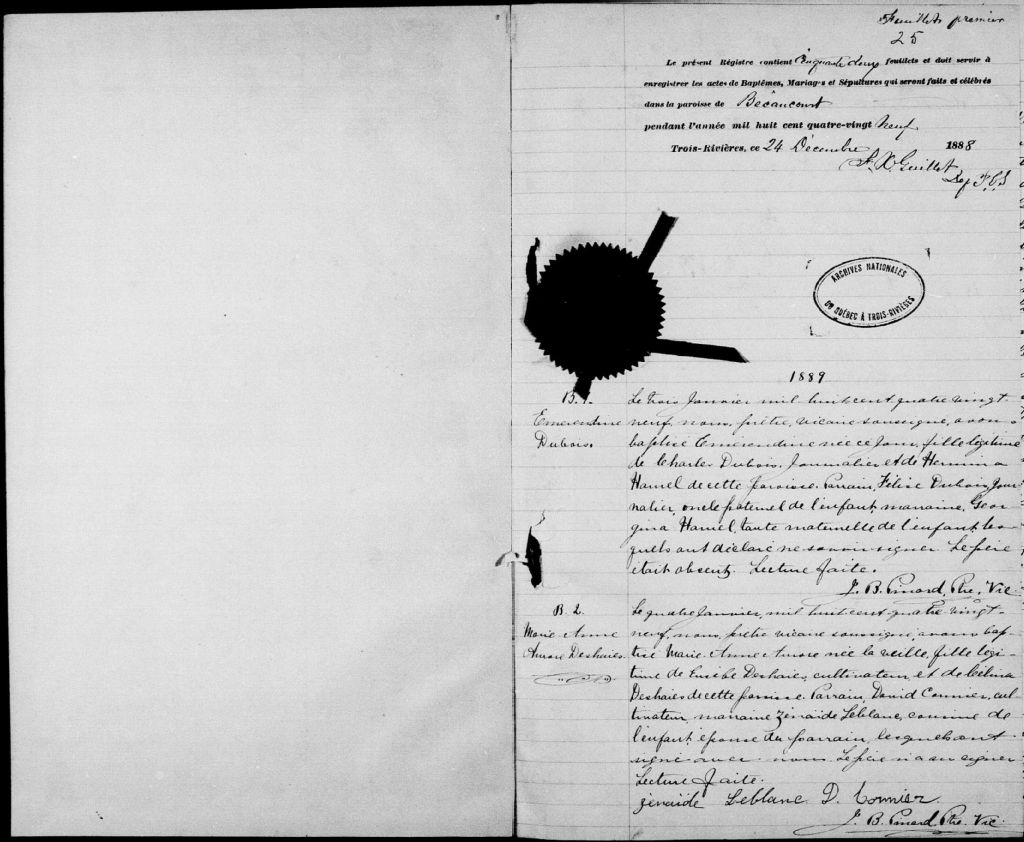 Feuillets premier
25
Le présent Régistre contient Cinquante deux feuillets et doit servir à
enregistrer les actes de Baptêmes, Mariag-s et Sépultures qui seront faits et célébrés
dans la paroisse de Bécancourt
pendant l'année mil huit cent quatre-vingt Neuf
Trois-Rivières, ce 24 Décembre 1888
F. X. Guillet
Dep P.C.S
ARCHIVES NATIONALES
DU QUÉBEC À TROIS-RIVIÈRES
1889
B. 1.
Emerendine
Dubois.
Le trois Janvier mil huit cent quatre vingt
neuf, nous, prêtre, vicaire soussigné, avons
baptisé Emérendine née ce jour, fille légitime
de Charles Dubois, Journalier et de Hermina
Hamel de cette paroisse. Parrain, Félix Dubois Jour
nalier, oncle paternel de l'enfant, marraine, Geor
gina Hamel, tante maternelle de l'enfant, les
quels ont déclaré ne savoir signer. Le père
était absent. Lecture faite.
J. B. Pinard, Ptre. Vic
B. 2.
Marie Anne
Aurore Deshaies.
Le quatre Janvier, mil huit cent quatre vingt-
neuf, nous, prêtre vicaire soussigné, avons bap-
tisé Marie Anne Aurore née la veille, fille légi-
time de Eusèbe Deshaies, cultivateur, et de Célina
Deshaies de cette paroisse. Parrain, David Cormier, cul-
tivateur, marraine Zénaïde Leblanc, cousine de
l'enfant, épouse du parrain, lesquels ont
signé avec nous. Le père n'a su signer
Lecture faite.
Zénaïde Leblanc D. Cormier
J. B. Pinard Ptre. Vic.